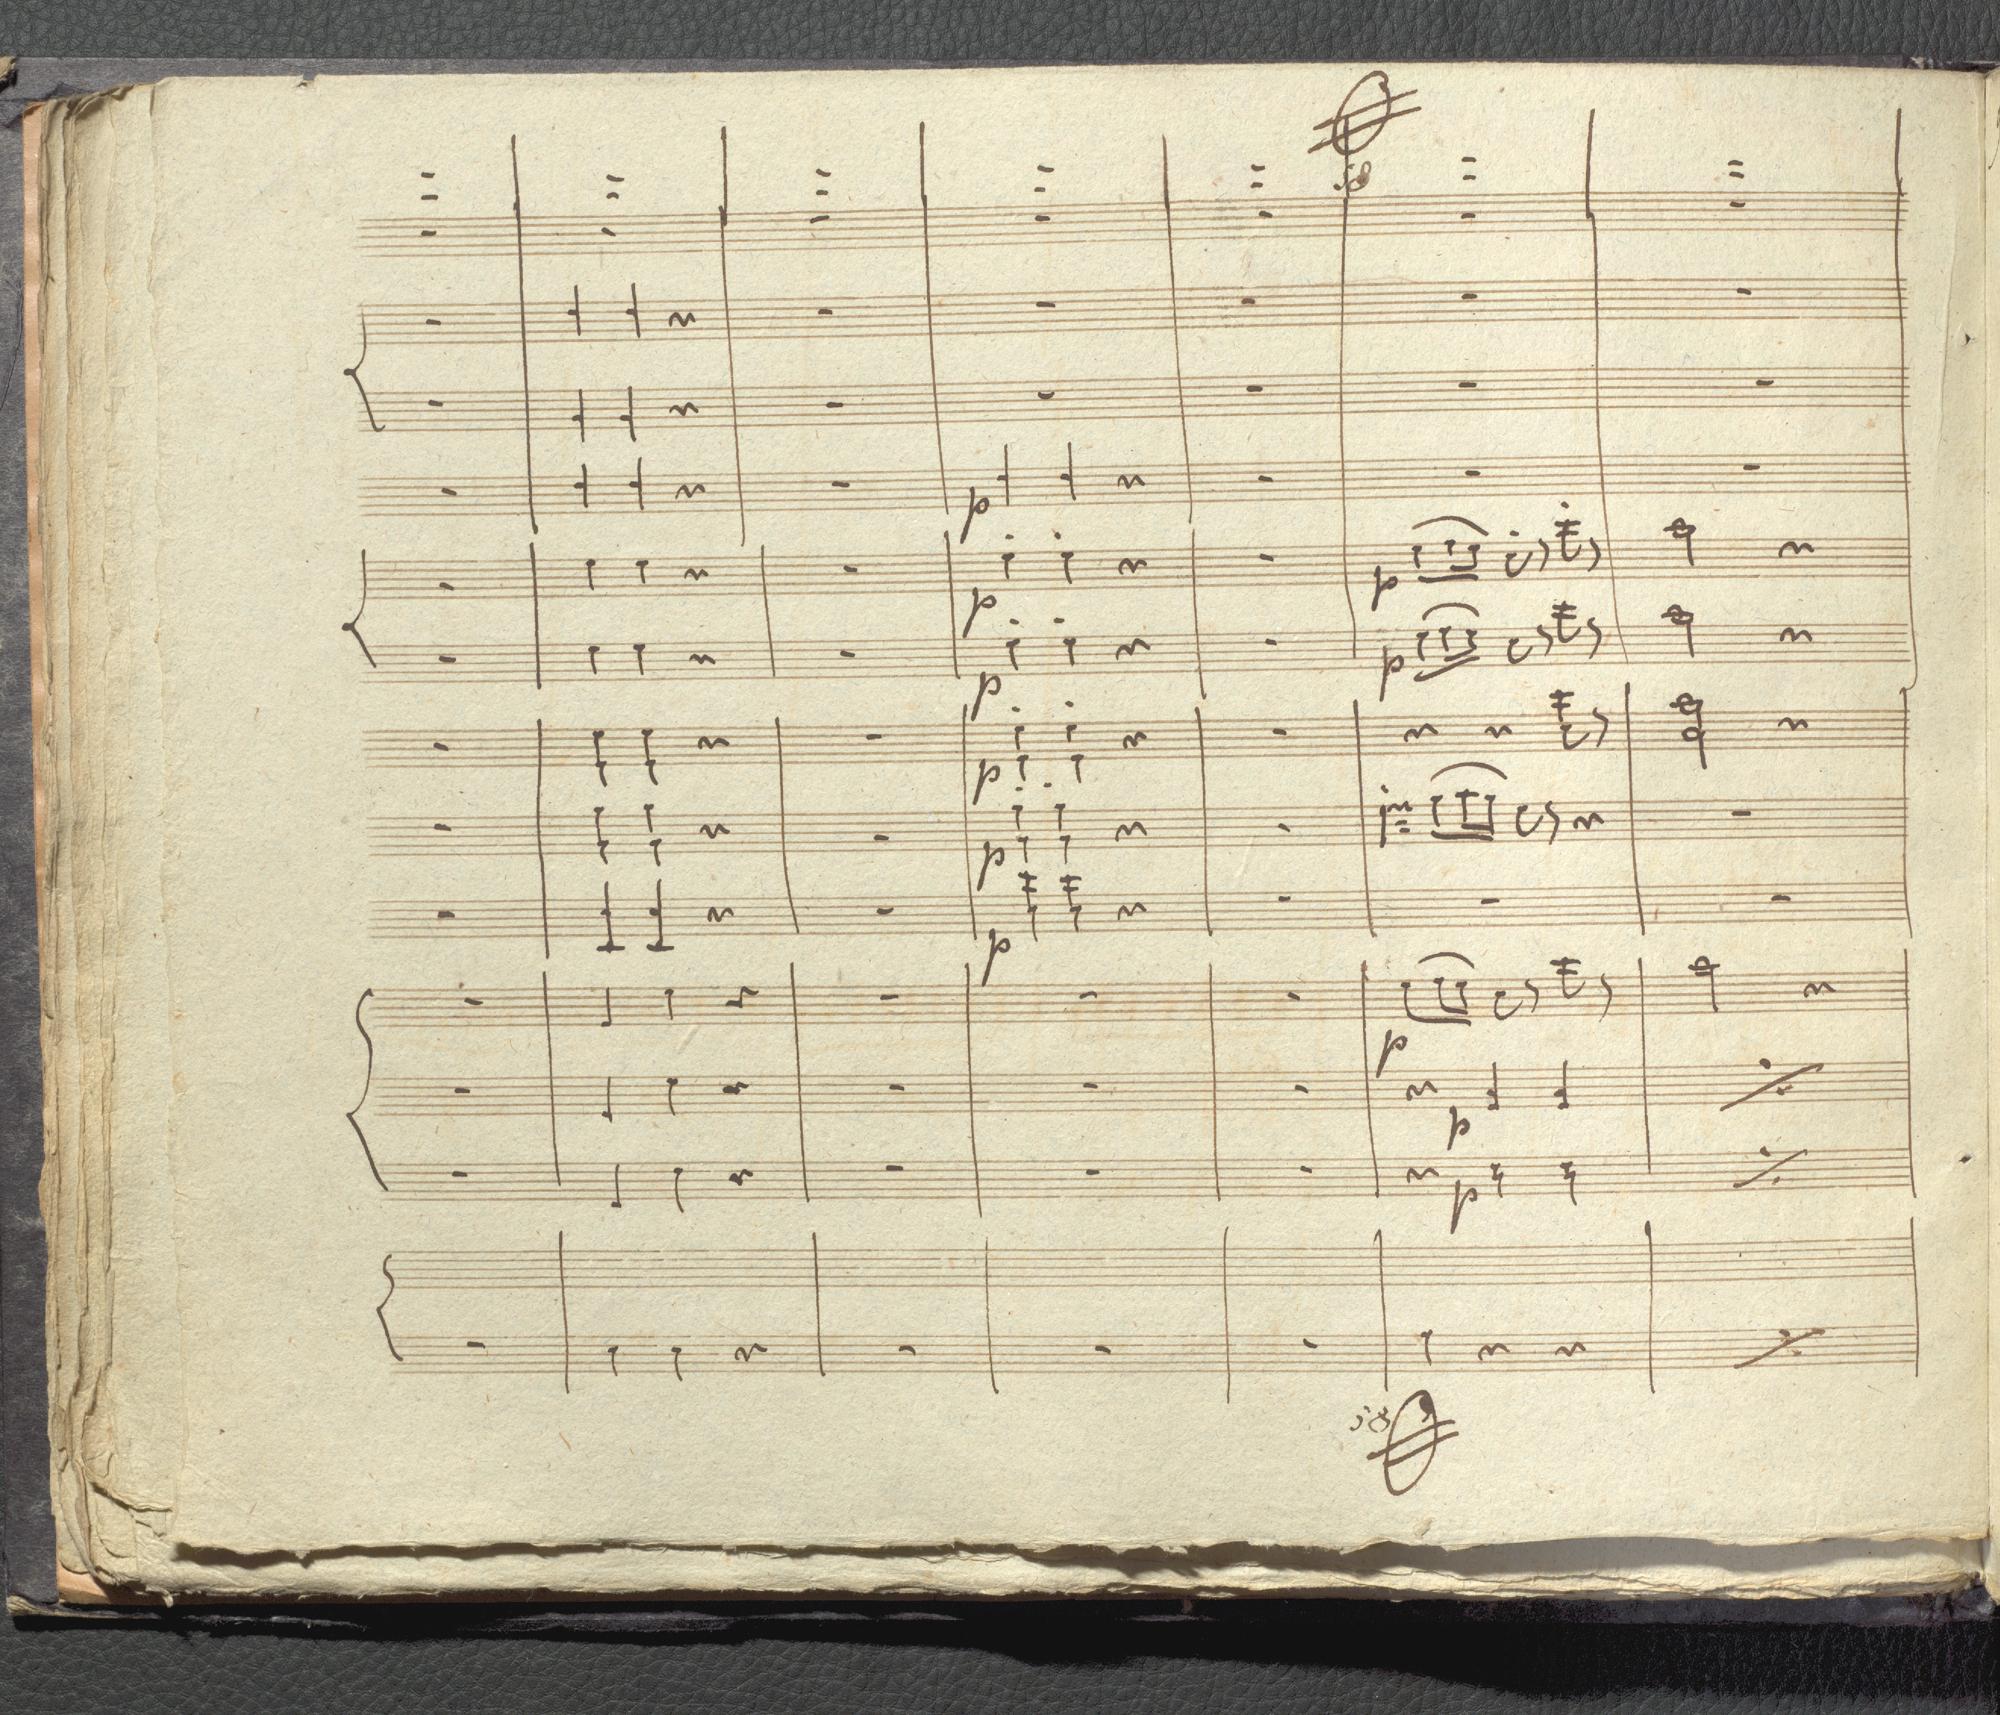 p
p p
p p
p
p
p
p
p
p